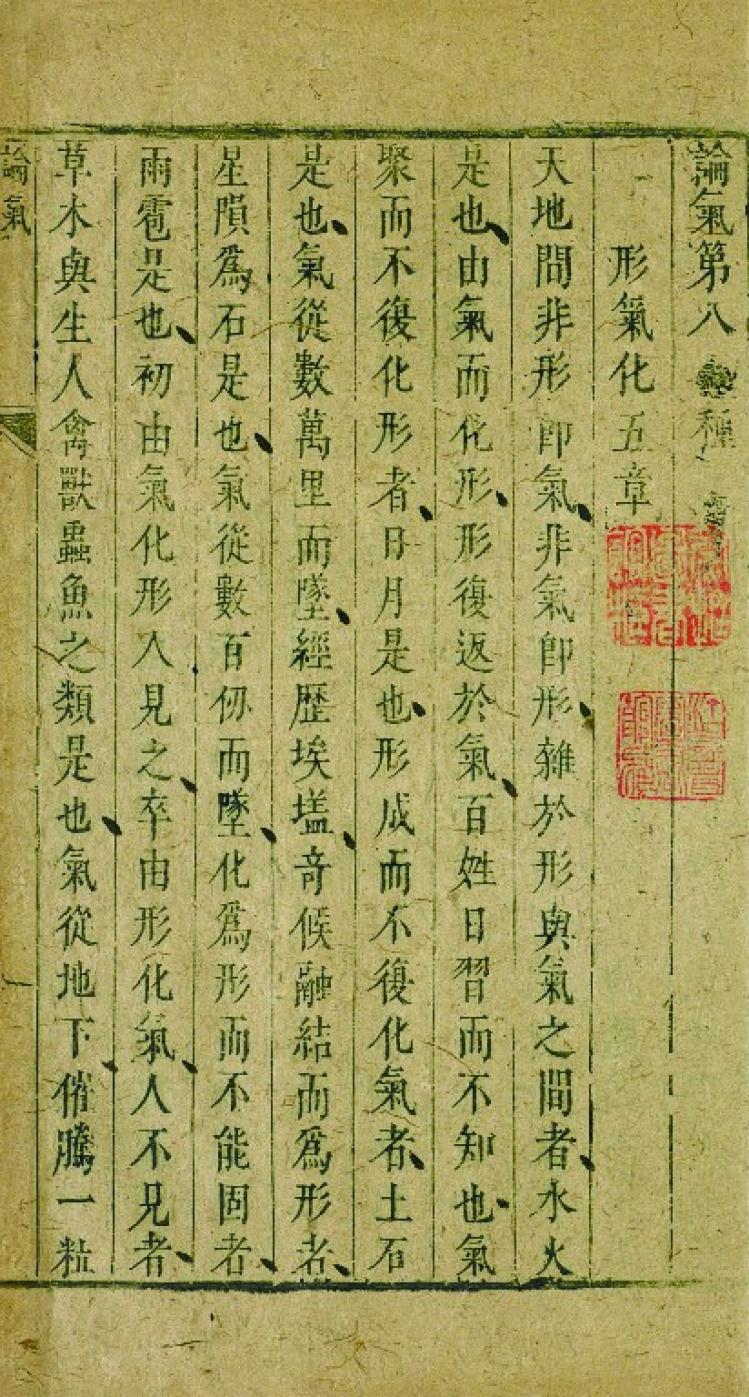 論氣第八 種
形氣化五章
天地間非形卽氣、非氣卽形、雜於形與氣之間者、水火
是也、由氣而化形、形復返於氣、百姓日習而不知也、氣
聚而不復化形者、日月是也、形成而不復化氣者、土石
是也、氣從數萬里而墜、經歷埃壒、奇候融結而爲形者、
星隕爲石是也、氣從數百仞而墜、化爲形而不能固者、
雨雹是也、初由氣化形人見之、卒由形化氣、人不見者、
草木與生人禽獸蟲魚之類是也、氣從地下催騰一粒
論氣